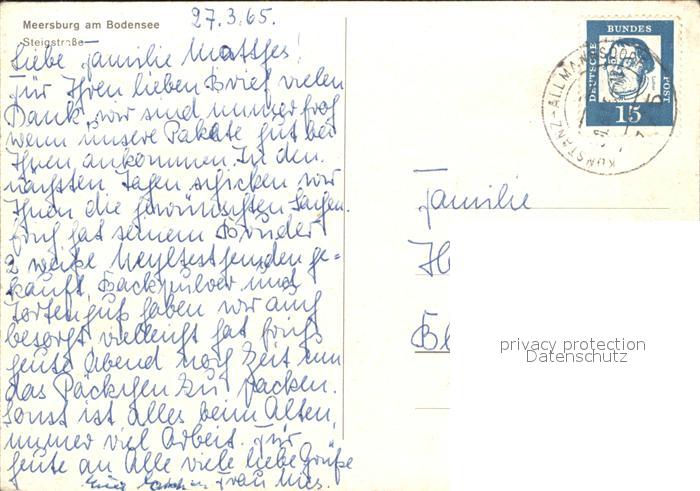 Meersburg am Bodensee
Steigstraße
27.3.65.
Liebe Familie Matthes!
Für Ihren lieben Brief vielen
Dank, wir sind immer froh
wenn unsere Pakete gut bei
Ihnen ankommen. In den
nächsten Tagen schicken wir
Ihnen die gewünschten Sachen.
hat seinem Bruder
2 weiße ge=
kauft, Backpulver und
Tortenguß haben wir auch
besorgt vielleicht hat
heute Abend noch Zeit um
das Päckchen zu packen.
Sonst ist alles beim Alten,
immer viel Arbeit. Für
heute an Alle viele liebe Grüße
Frau
DEUTSCHE
BUNDES
POST
15
KONSTANZ-ALLMANNSDORF
Familie
privacy protection
Datenschutz